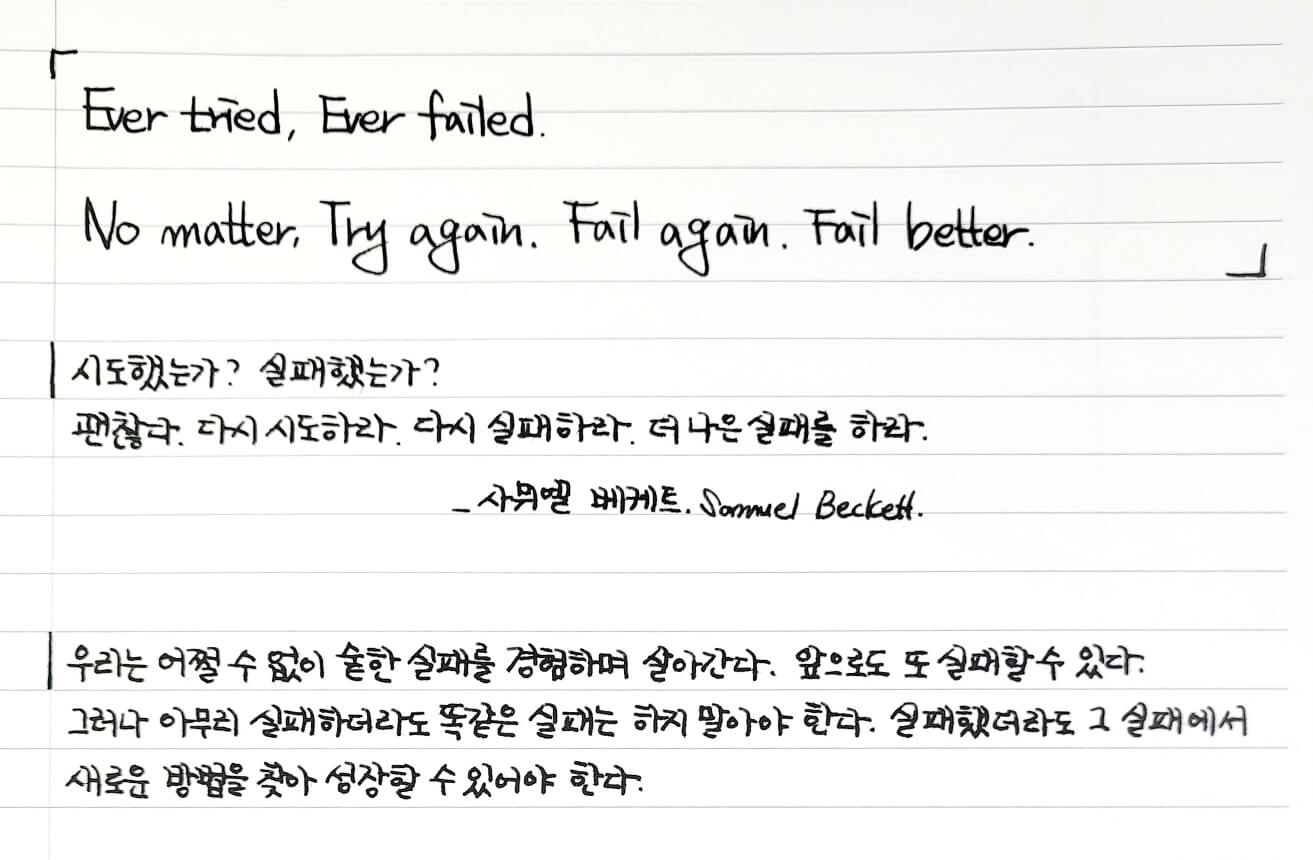 「
Ever tried, Ever failed.
No matter, Try again. Fail again. Fail better.
」
시도했는가? 실패했는가?
괜찮다. 다시 시도하라. 다시 실패하라. 더 나은 실패를 하라.
_사뮈엘 베케트. Samuel Beckett.
우리는 어쩔 수 없이 숱한 실패를 경험하며 살아간다. 앞으로도 또 실패할 수 있다.
그러나 아무리 실패하더라도 똑같은 실패는 하지 말아야 한다. 실패했더라도 그 실패에서
새로운 방법을 찾아 성장할 수 있어야 한다.